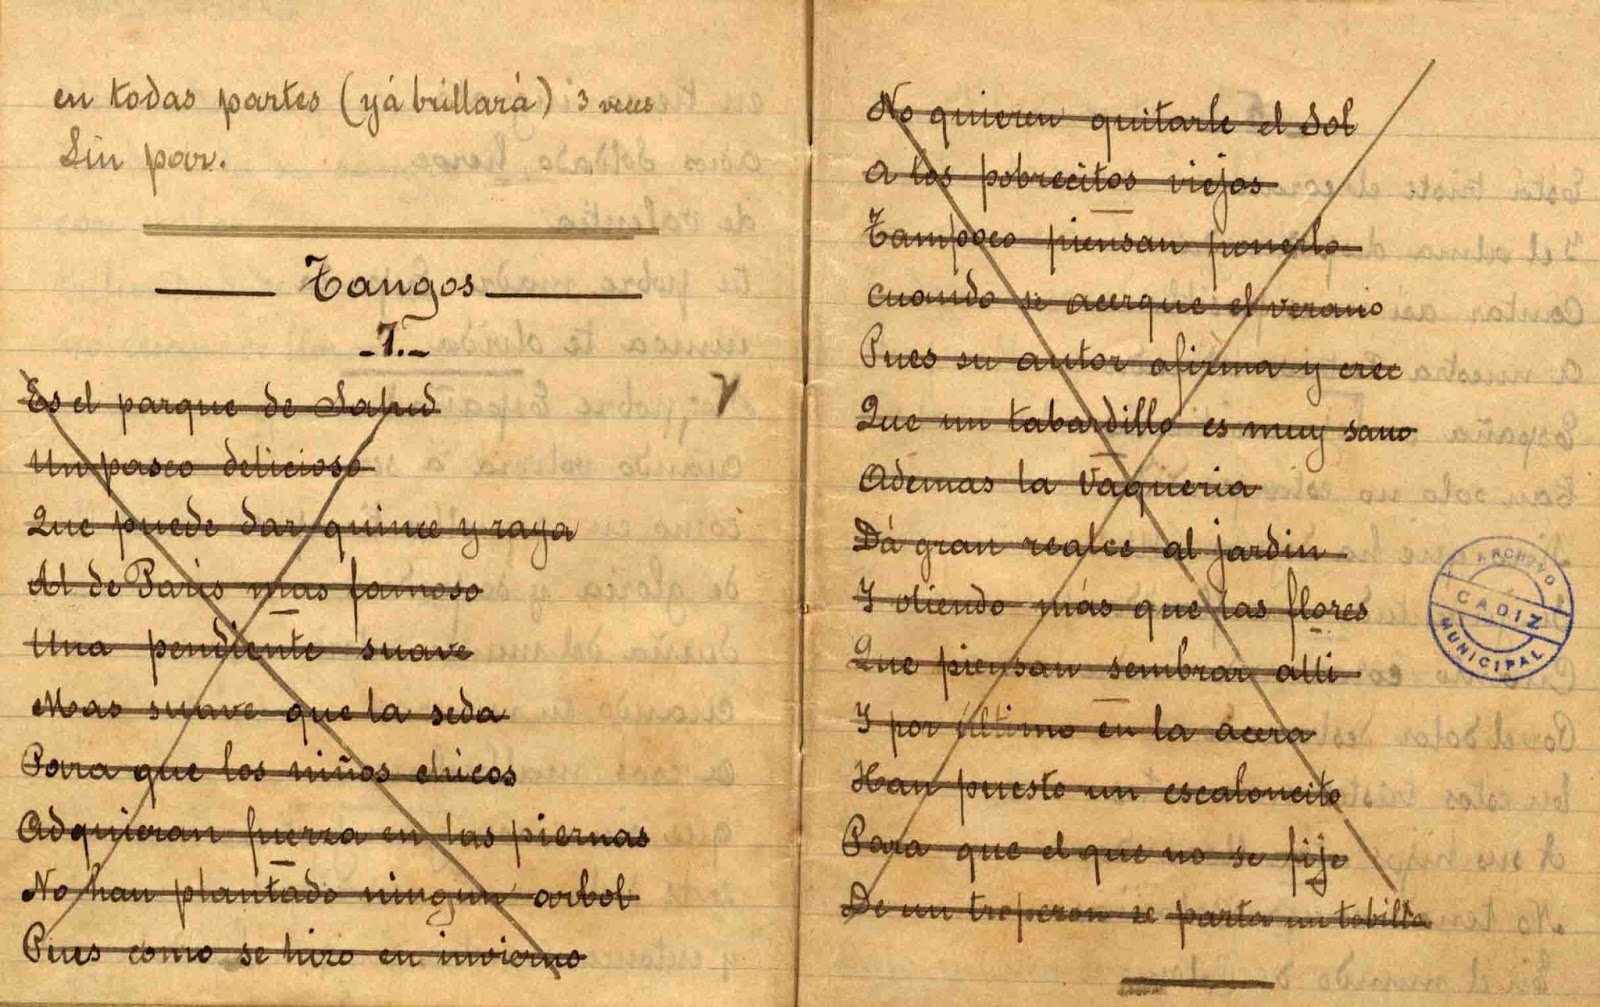 en todas partes (yá brillará) 3 veces
Sin par.
Tangos
-1.-
Es el parque de Salud
Un paseo delicioso
Que puede dar quince y raya
Al de Paris mas famoso
Una pendiente suave
Mas suave que la seda
Para que los niños chicos
Adquieran fuerza en las piernas
No han plantado ningun arbol
Pues como se hizo en invierno
No quieren quitarle el Sol
A los pobrecitos viejos
Tampoco piensan ponerlo
Cuando se acerque el verano
Pues su autor afirma y cree
Que un tabardillo es muy sano
Ademas la Vaqueria
Dá gran realce al jardin
Y oliendo más que las flores
Que piensan sembrar alli
Y por último en la acera
Han puesto un escaloncito
Para que el que no se fije
De un tropezon se parta un tobillo
ARCHIVO
CADIZ
MUNICIPAL